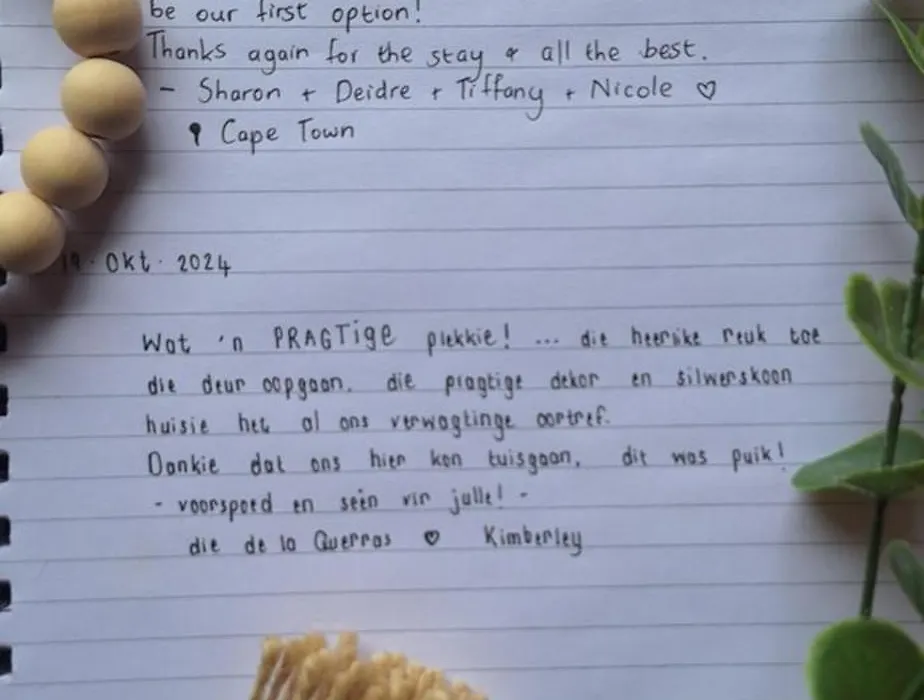 be our first option!
Thanks again for the stay & all the best.
- Sharon + Deidre + Tiffany + Nicole ♡
Cape Town
19 · Okt · 2024
Wat 'n PRAGTige plekkie! ... die heerlike reuk toe
die deur oopgaan, die pragtige dekor en silwerskoon
huisie het al ons verwagtinge oortref.
Dankie dat ons hier kon tuisgaan, dit was puik!
- voorspoed en seën vir julle! -
die de la Querras ♡ Kimberley